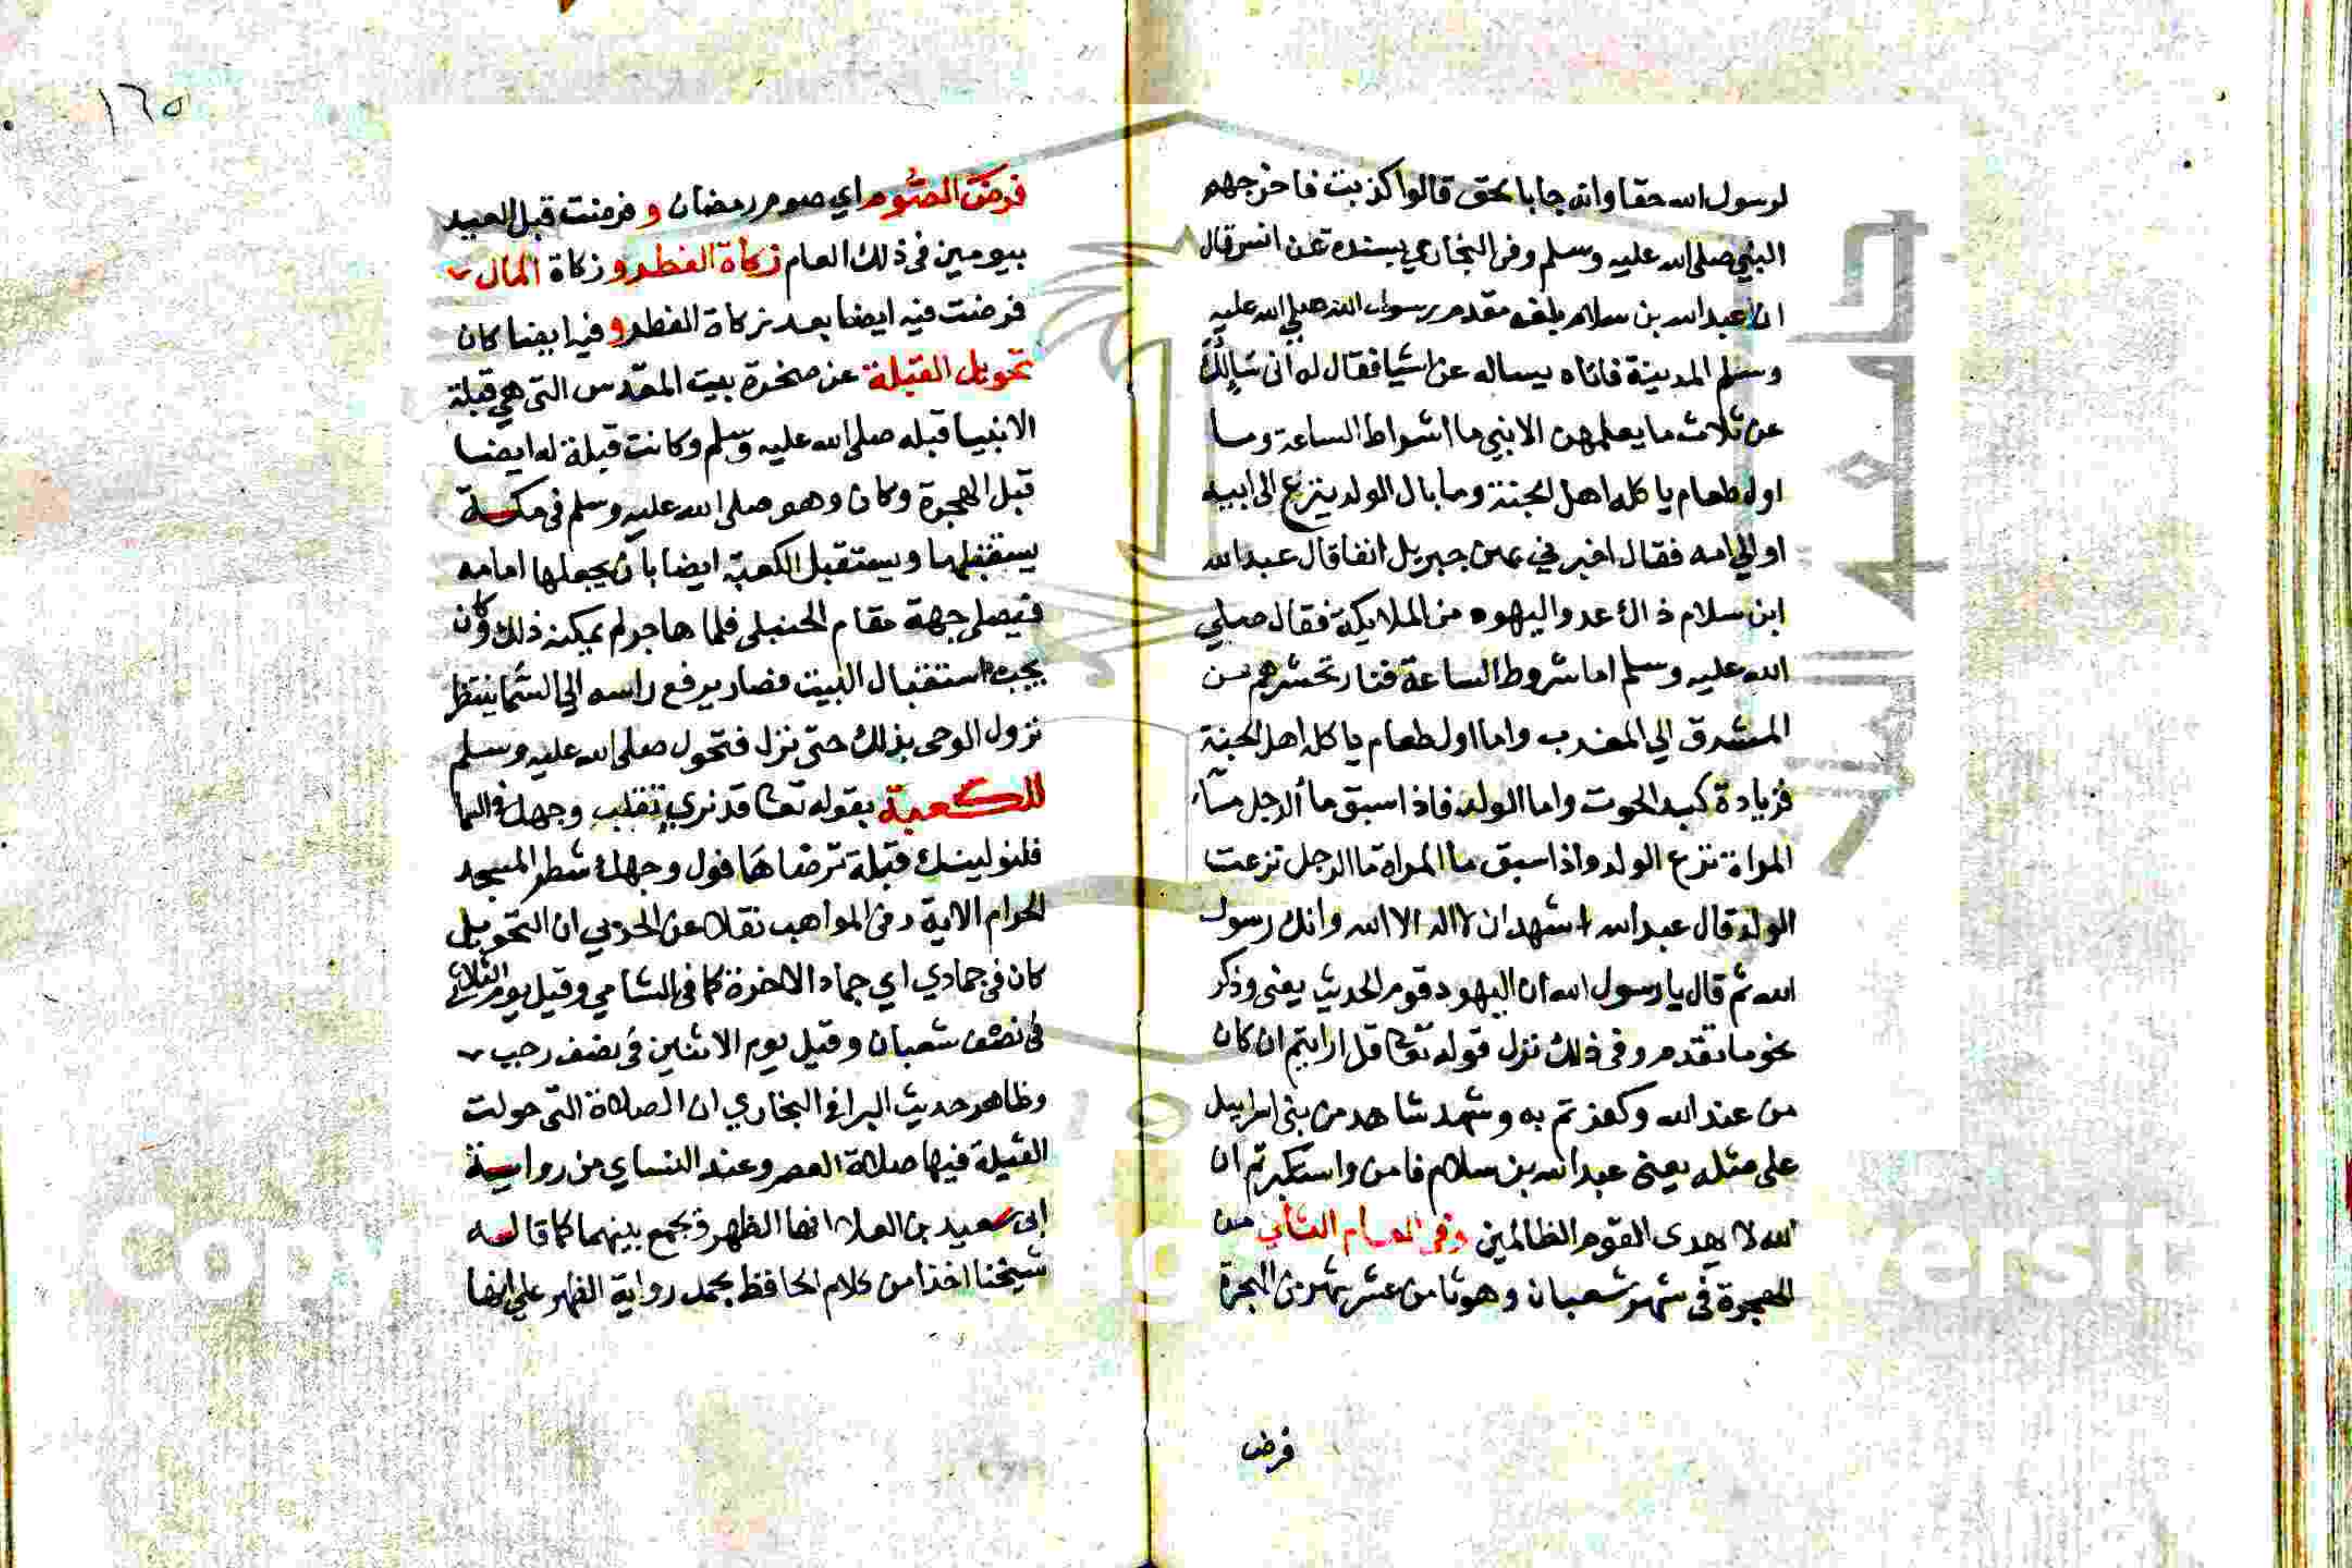 لرسول الله حقا وانه جا بالحق قالوا كذبت فاخرجهم
النبي صلى الله عليه وسلم وفى البخاري بسنده عن انس قال
ان عبد الله بن سلام بلغه مقدم رسول الله صلي الله عليه
وسلم المدينة فاتاه يساله عن اشيا فقال له انى سايلك
عن ثلاث ما يعلمهن الا نبي ما اشراط الساعة وما
اول طعام ياكله اهل الجنة وما بال الولد ينزع الى ابيه
او الي امه فقال اخبرني بهن جبريل انفا قال عبد الله
ابن سلام ذاك عدو اليهود من الملايكة فقال صلي
الله عليه وسلم اما شروط الساعة فنار تحشرهم من
المشرق الي المغرب واما اول طعام ياكله اهل الجنة
فزيادة كبد الحوت واما الولد فاذا سبق ما الرجل ماء
المراة نزع الولد واذا سبق ما المراة ما الرجل نزعت
الولد قال عبد الله اشهد ان لا اله الا الله وانك رسول
الله ثم قال يا رسول الله ان اليهود قوم الحديث يعنى وذكر
نحو ما تقدم وفى ذلك نزل قوله تعا قل ارايتم ان كان
من عند الله وكفرتم به وشهد شاهد من بنى اسرايل
على مثله يعنى عبد الله بن سلام فامن واستكبرتم ان
الله لا يهدى القوم الظالمين وفى العام الثاني من
الهجرة فى شهر شعبان وهو ثامن عشر شهر من الهجرة
فرض
١٦٥
فرض الصوم اي صوم رمضان و فرضت قبل العيد
بيومين فى ذلك العام زكاة الفطر و زكاة المال
فرضت فيه ايضا بعد زكاة الفطر و فيه ايضا كان
تحويل القبلة عن صخرة بيت المقدس التى هي قبلة
الانبيا قبله صلى الله عليه وسلم وكانت قبلة له ايضا
قبل الهجرة وكان وهو صلى الله عليه وسلم فى مكة
يستقبلها ويستقبل الكعبة ايضا بان يجعلها امامه
فيصلى جهة مقام الحنبلى فلما هاجر لم يمكنه ذلك وكان
يحب استقبال البيت فصار يرفع راسه الي السما ينتظر
نزول الوحى بذلك حتى نزل فتحول صلى الله عليه وسلم
للكعبة بقوله تعا قد نري تقلب وجهك فى السما
فلنولينك قبلة ترضاها فول وجهك شطر المسجد
الحرام الاية وفى المواهب نقلا عن الحربي ان التحويل
كان فى جمادي اي جماد الاخرة كما فى الشامي وقيل يوم الثلاثا
فى نصف شعبان وقيل يوم الاثنين فى نصف رجب
وظاهر حديث البرا فى البخاري ان الصلاة التى حولت
القبلة فيها صلاة العصر وعند النساي من رواية
ابى سعيد بن العلا انها الظهر فجمع بينهما كما قاله
شيخنا اخذا من كلام الحافظ بحمل رواية الظهر علي انها